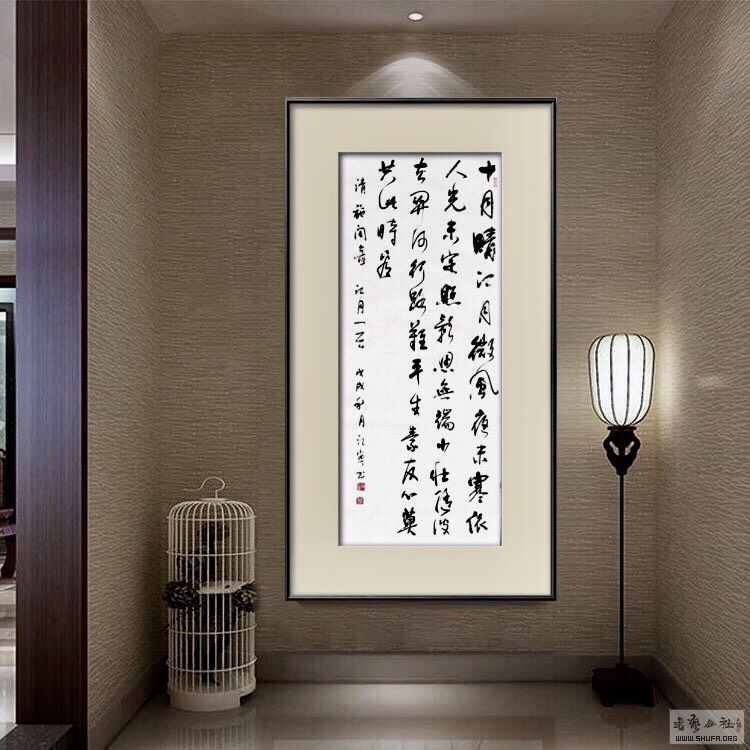 十月晴江月微風夜未寒依
人光未定照影思無端少壯随波
去關河行路難平生素友心莫
共此時看
清施閏章 江月一首 戊戌秋月江書
書藝公社
WWW.SHUFA.ORG